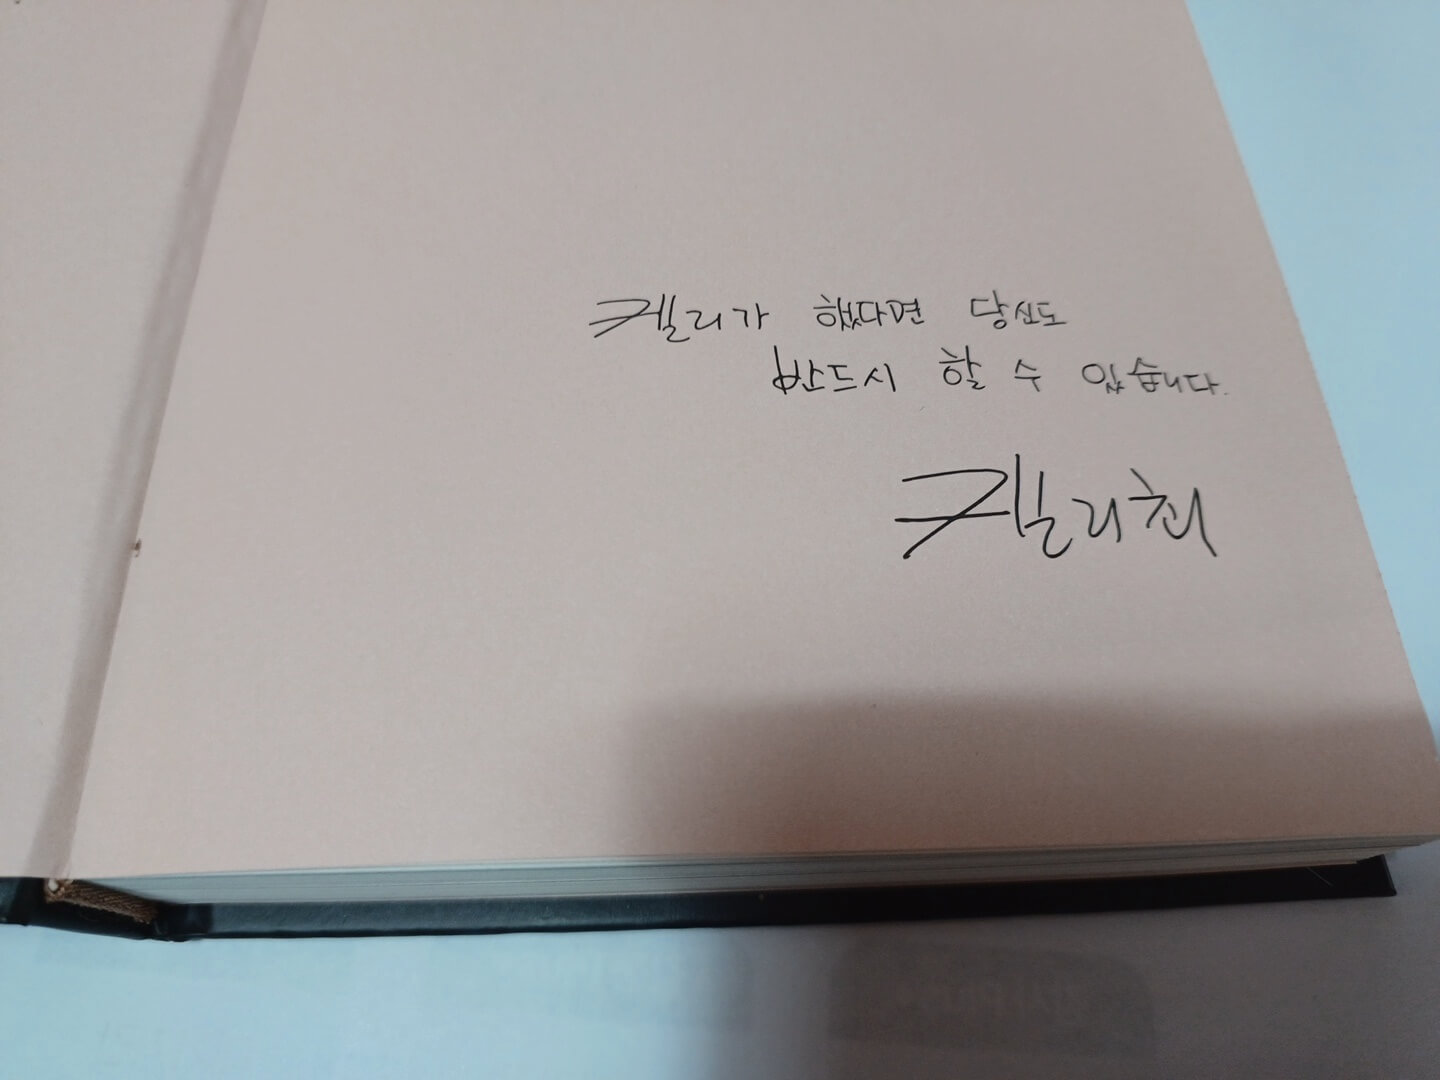 켈리가 했다면 당신도
반드시 할 수 있습니다.
켈리최